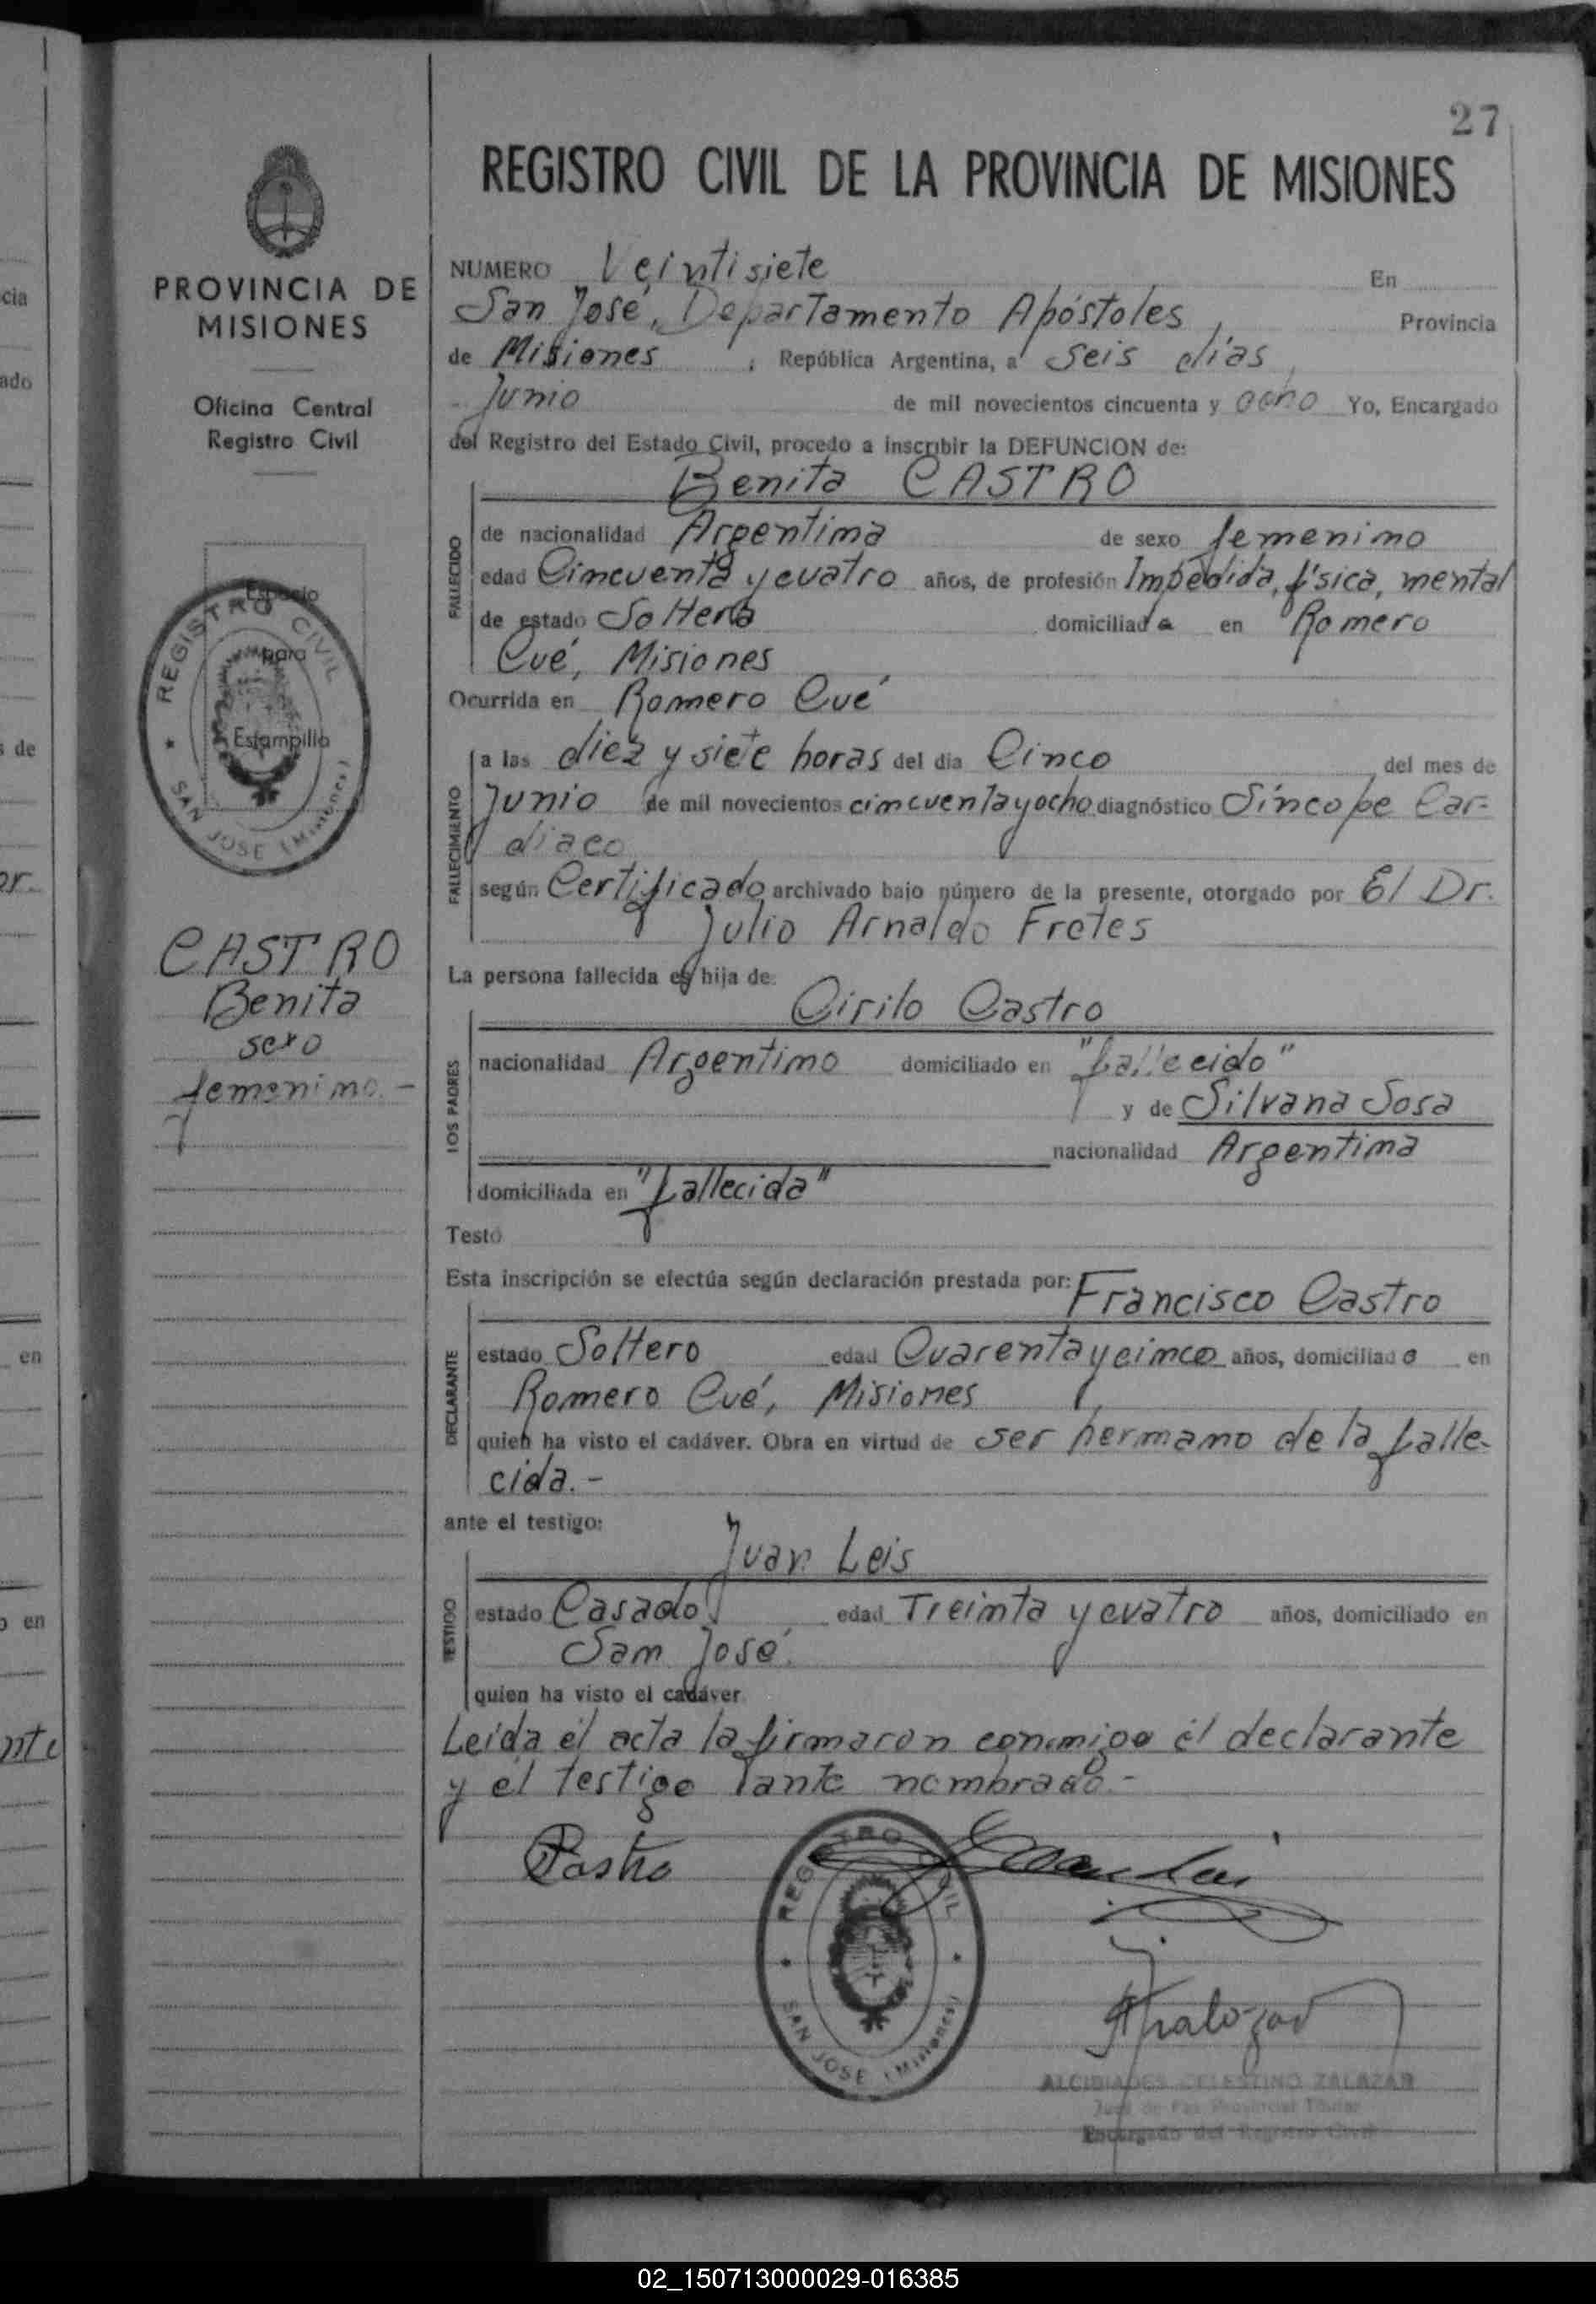 27
REGISTRO CIVIL DE LA PROVINCIA DE MISIONES
PROVINCIA DE
MISIONES
Oficina Central
Registro Civil
Espacio
para
Estampilla
REGISTRO CIVIL
SAN JOSE (Misiones)
CASTRO
Benita
sexo
femenino.-
NUMERO Veintisiete En
San José, Departamento Apóstoles, Provincia
de Misiones, República Argentina, a seis días,
Junio de mil novecientos cincuenta y ocho Yo, Encargado
del Registro del Estado Civil, procedo a inscribir la DEFUNCION de:
Benita CASTRO
FALLECIDO
de nacionalidad Argentina de sexo femenino
edad Cincuenta y cuatro años, de profesión Impedida, física, mental
de estado Soltera domiciliada en Romero
Cué, Misiones
Ocurrida en Romero Cué
FALLECIMIENTO
a las diez y siete horas del día Cinco del mes de
Junio de mil novecientos cincuenta y ocho diagnóstico Síncope Car-
diaco
según Certificado archivado bajo número de la presente, otorgado por El Dr.
Julio Arnaldo Fretes
La persona fallecida es hija de:
Cirilo Castro
LOS PADRES
nacionalidad Argentino domiciliado en "fallecido"
y de Silvana Sosa
nacionalidad Argentina
domiciliada en "fallecida"
Testó
Esta inscripción se efectúa según declaración prestada por:
Francisco Castro
DECLARANTE
estado Soltero edad Cuarenta y cinco años, domiciliado en
Romero Cué, Misiones
quien ha visto el cadáver. Obra en virtud de ser hermano de la falle-
cida.-
ante el testigo:
Juan Leis
TESTIGO
estado Casado edad Treinta y cuatro años, domiciliado en
San José.
quien ha visto el cadáver
Leída él acta la firmaron conmigo él declarante
y él testigo tante nombrado.-
Castro
Juan Leis
REGISTRO CIVIL
SAN JOSE (Misiones)
ALCIBIADES CELESTINO ZALAZAR
Juez de Paz Provincial Titular
Encargado del Registro Civil
02_150713000029-016385